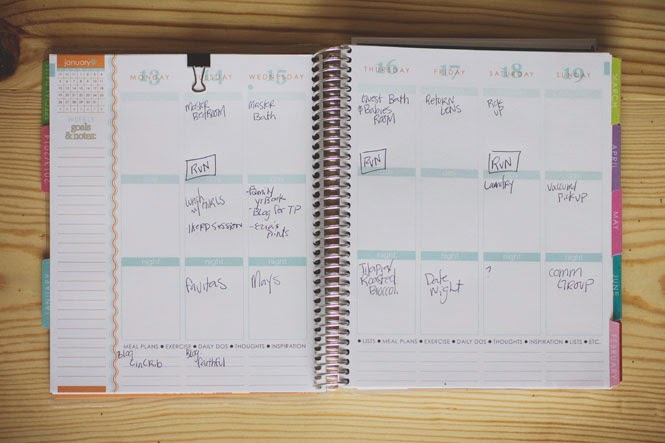 january
WEEKLY
goals
& notes:
13
MONDAY
TUESDAY
15
WEDNESDAY
16
THURSDAY
17
FRIDAY
18
SATURDAY
19
SUNDAY
Master
BEDROOM
Master
Bath
Guest Bath
& Babies
ROOM
RETURN
LENS
Pick
UP
RUN
RUN
RUN
Laundry
Family
yr Book
- Blog for TP
- Prints
PickUP
night
night
night
night
night
night
Fajitas
Mays
Tilapia
Roasted
Broccol.
Date
Night
?
Comm
GROUP
MEAL PLANS • EXERCISE • DAILY DOS • THOUGHTS • INSPIRATION
• LISTS • MEAL PLANS • EXERCISE • DAILY DOS • THOUGHTS • INSPIRATION • LISTS • ETC.
Blog
Blog
faithful
APRIL
MAY
JUNE
FEBRUARY